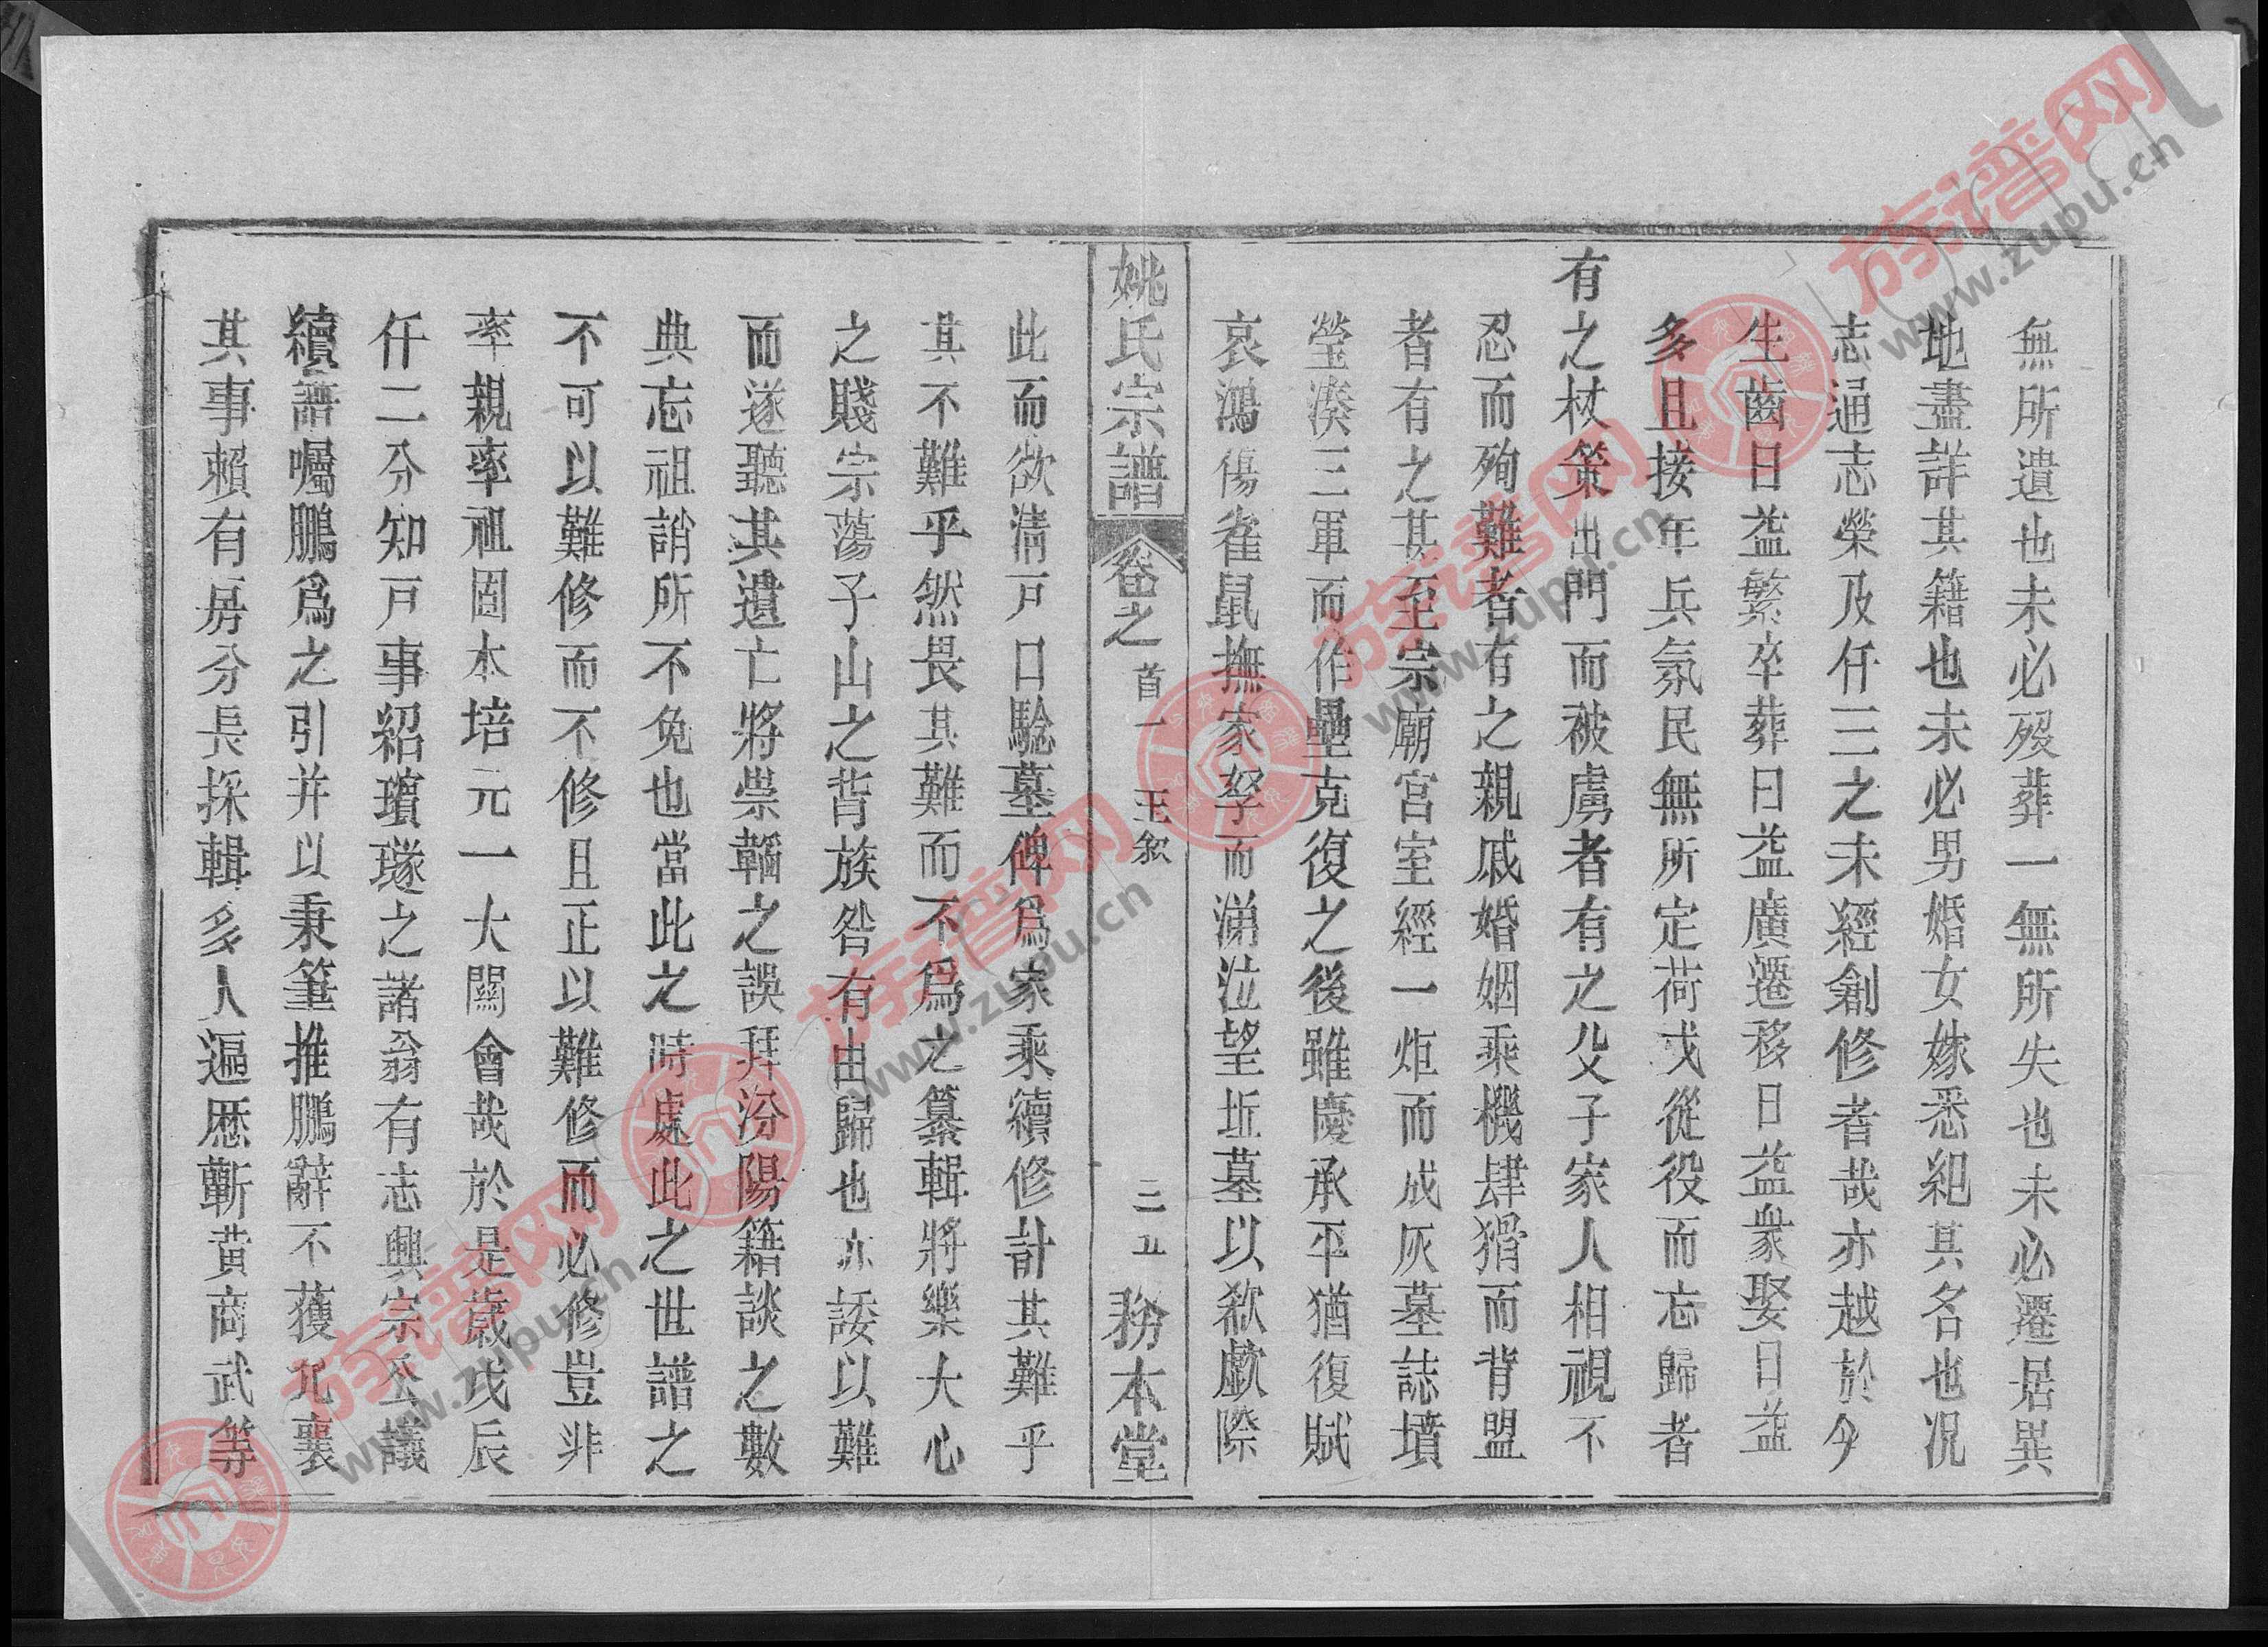 無所遺也未必歿葬一無所失也未必遷居異
地盡詳其籍也未必男婚女嫁悉紀其名也况
志通志榮及仟三之未經創修者哉亦越於今
生齒日益繁卒葬日益廣遷移日益衆娶日益
多且接年兵氛民無所定荷戈從役而忘歸者
有之杖策出門而被虜者有之父子家人相視不
忍而殉難者有之親戚婚姻乘機肆猾而背盟
者有之甚至宗廟宮室經一炬而成灰墓誌墳
瑩湊三軍而作壘克復之後雖慶承平猶復賦
哀鴻傷雀鼠撫家孥而涕泣望坵墓以欷歔際
姚氏宗譜 卷之首一 王敘 三五 務本堂
此而欲清戸口騐墓碑爲家乘續修計其難乎
其不難乎然畏其難而不爲之纂輯將樂大心
之賤宗蕩子山之背族咎有由歸也亦諉以難
而遂聽其遺亡將崇韜之誤拜汾陽籍談之數
典忘祖誚所不免也當此之時處此之世譜之
不可以難修而不修且正以難修而必修豈非
率親率祖固本培元一大關會哉於是歲戊辰
仟二分知戸事紹瓊璲之諸翁有志興宗公議
續譜囑鵬爲之引并以秉筆推鵬辭不獲允襄
其事賴有房分長採輯多人遍歷蘄黃商武等
族谱网
www.zupu.cn
族谱网
www.zupu.cn
族谱网
www.zupu.cn
族谱网
www.zupu.cn